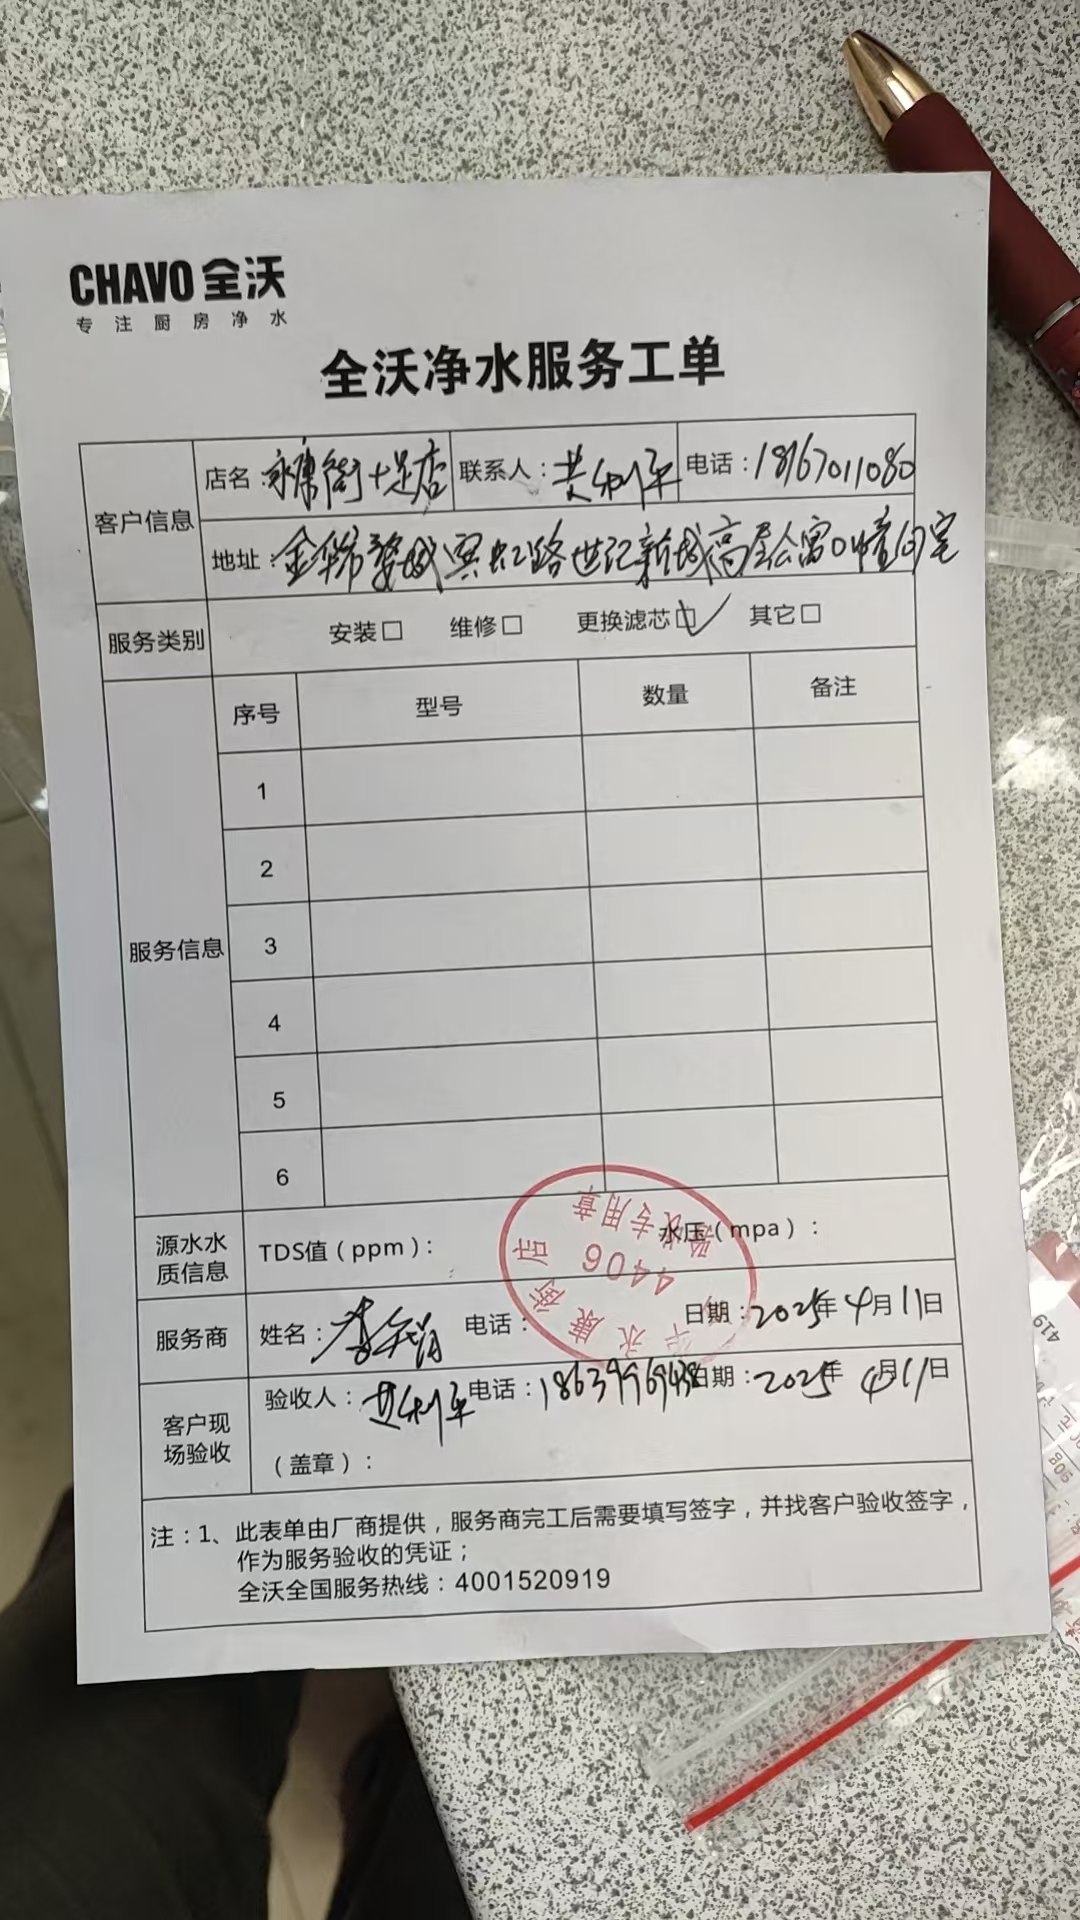 CHAVO 全沃
专注厨房净水
全沃净水服务工单
客户信息
店名：永康街十足店 联系人：黄利平 电话：18167011080
地址：金华市婺城宾虹路世纪新城高层公寓0幢
服务类别
安装□ 维修□ 更换滤芯□✓ 其它□
服务信息
序号 型号 数量 备注
1
2
3
4
5
6
源水水质信息
TDS值（ppm）： 水压（mpa）：
服务商
姓名：李 电话： 日期：2025年4月11日
客户现场验收
验收人：黄利平 电话： 日期：2025年4月11日
（盖章）：
永康街店
4406
验收专用章
注：1、此表单由厂商提供，服务商完工后需要填写签字，并找客户验收签字，
作为服务验收的凭证；
全沃全国服务热线：4001520919
419